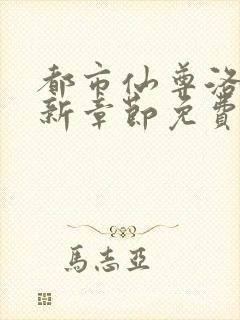 都市仙尊洛
新章節免費
馬志亞